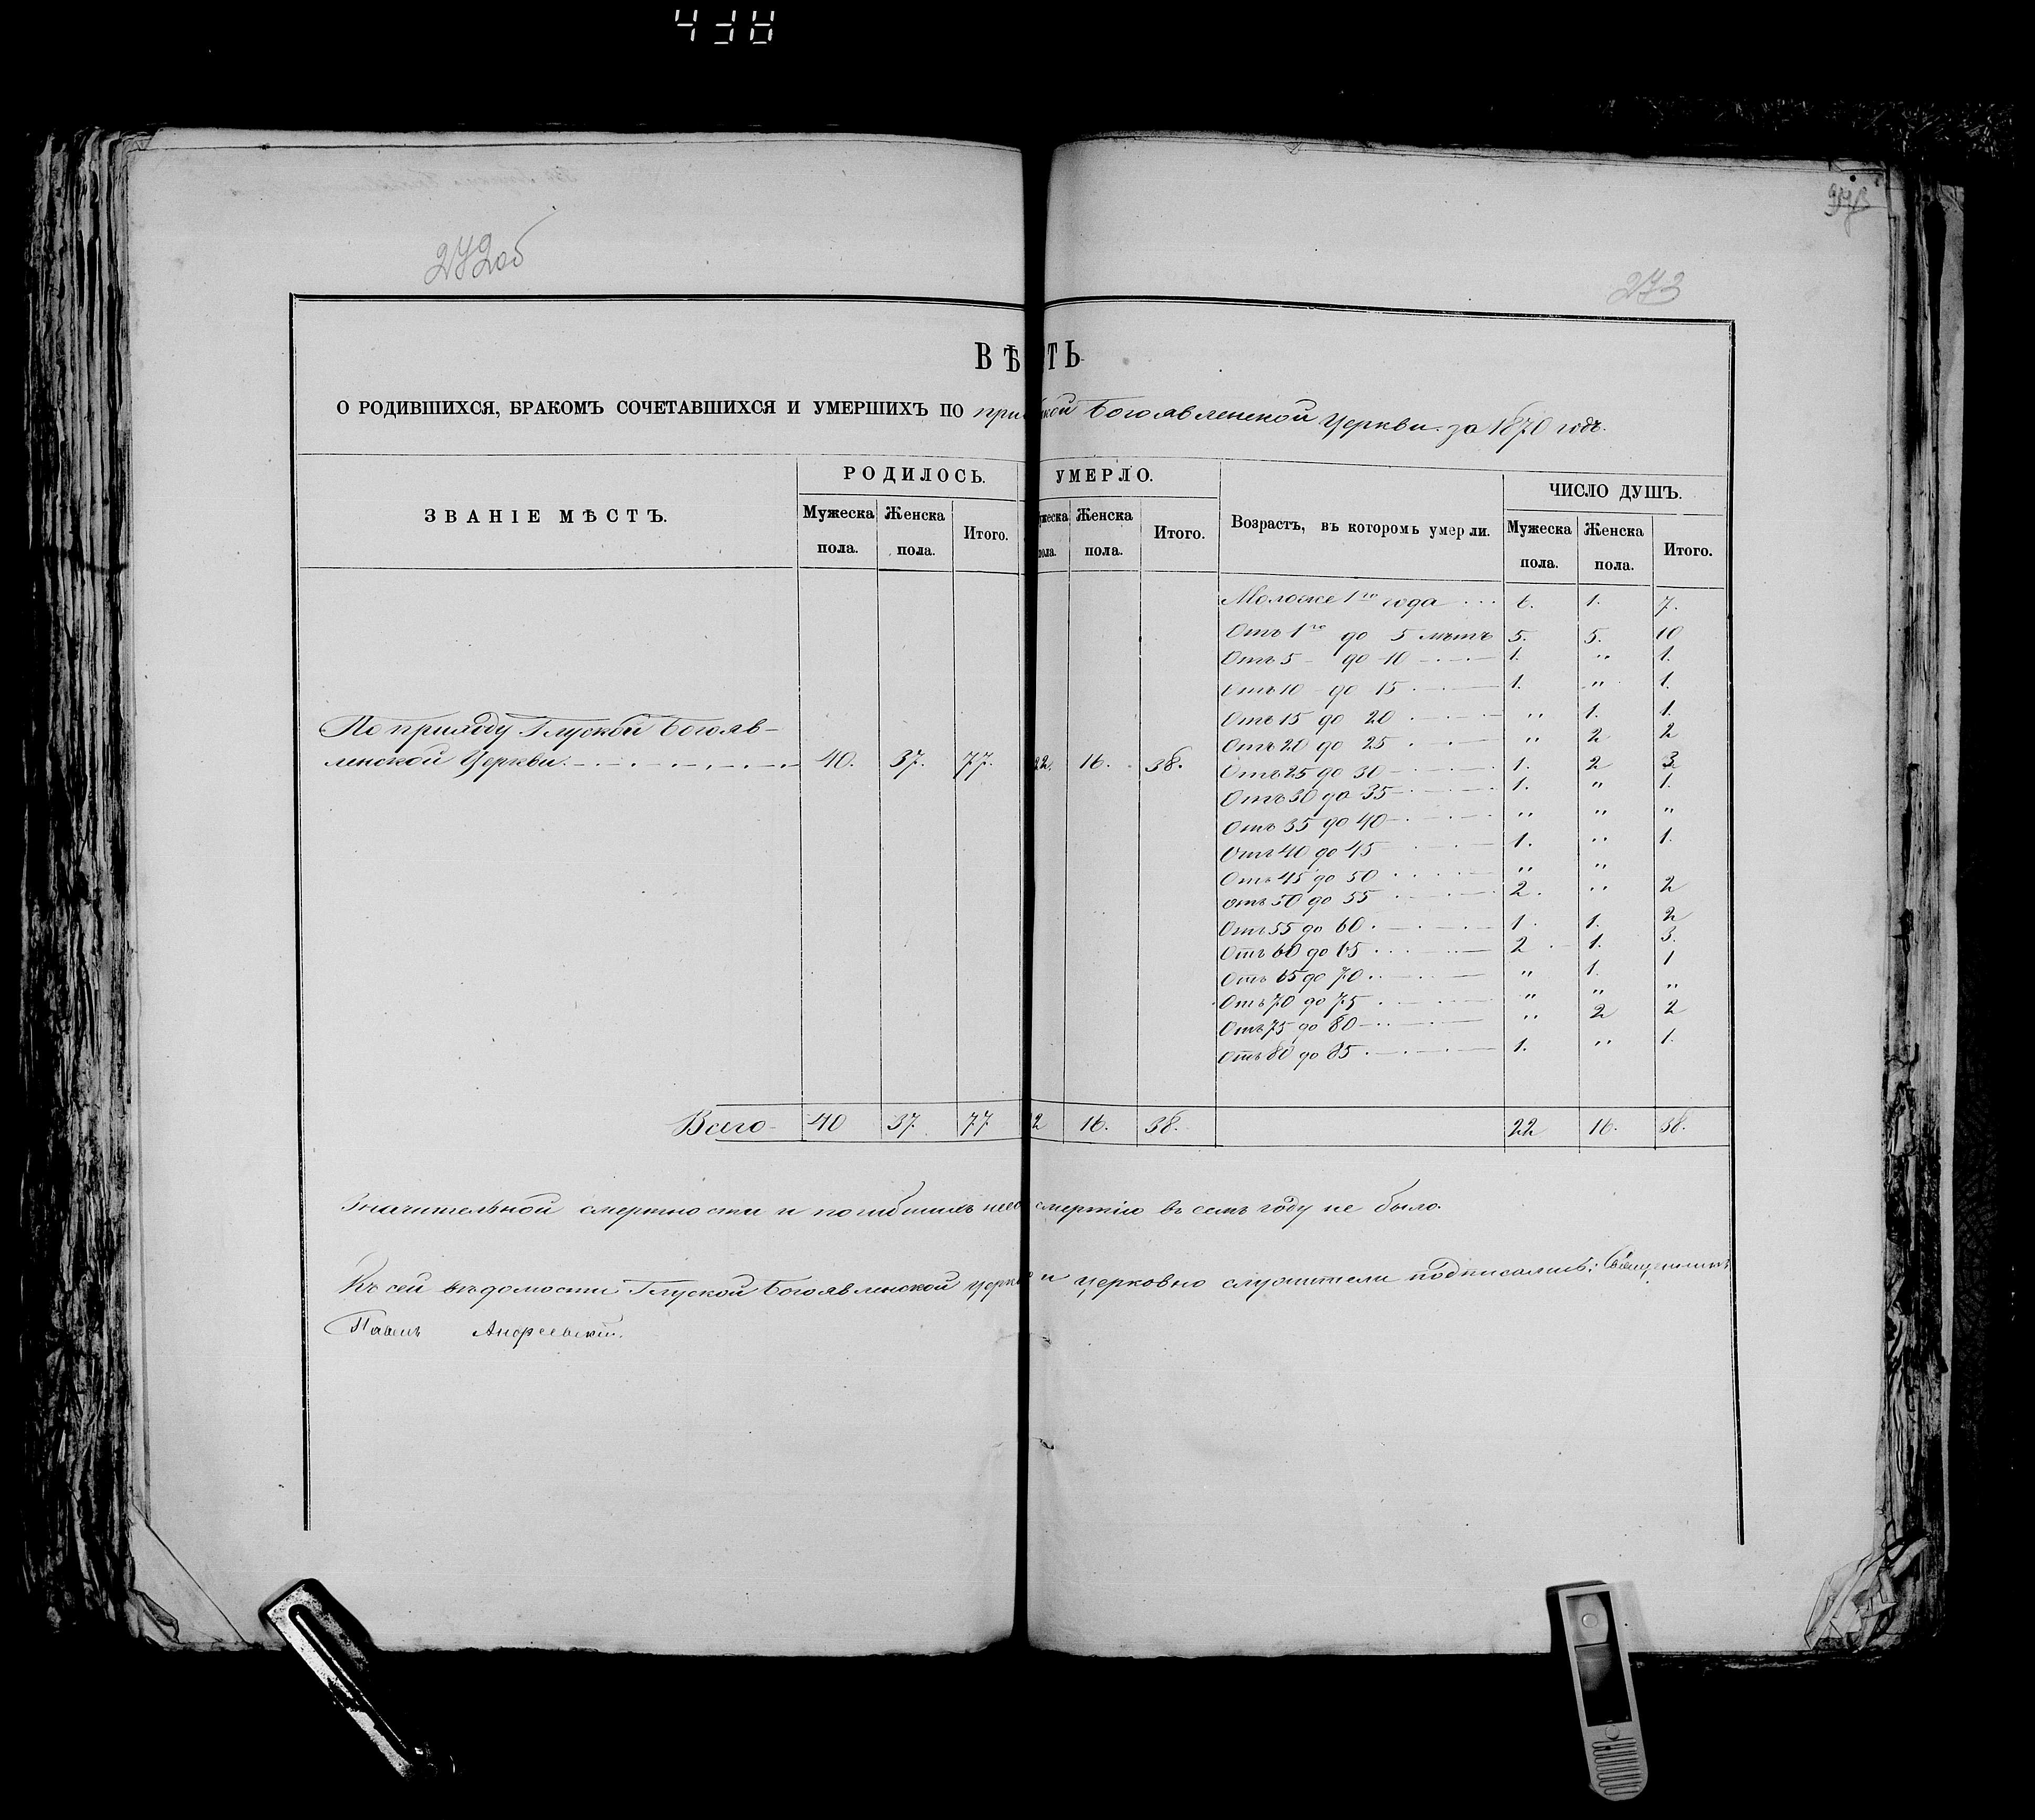 438
272об
273
ВѢ СТЬ
О РОДИВШИХСЯ, БРАКОМЪ СОЧЕТАВШИХСЯ И УМЕРШИХЪ ПО при ской Богоявленской Церкви за 1870 годъ.
ЗВАНІЕ МѢСТЪ. РОДИЛОСЬ. УМЕРЛО. Возрастъ, въ которомъ умерли. ЧИСЛО ДУШЪ.
Мужеска пола. Женска пола. Итого. жеска пола. Женска пола. Итого. Мужеска пола. Женска пола. Итого.
Моложе 1го года 6. 1. 7.
Отъ 1го до 5 лѣтъ 5. 5. 10
Отъ 5 до 10 1. " 1.
Отъ 10 до 15 1. " 1.
Отъ 15 до 20 " 1. 1.
Отъ 20 до 25 " 2 2
Отъ 25 до 30 1. 2 3
Отъ 30 до 35 1. " 1.
Отъ 35 до 40 " " "
Отъ 40 до 45 1. " 1.
Отъ 45 до 50 " "
отъ 50 до 55 2. " 2
Отъ 55 до 60 1. 1. 2
Отъ 60 до 65 2 1. 3.
Отъ 65 до 70 " 1. 1
Отъ 70 до 75 " " "
Отъ 75 до 80 " 2 2
Отъ 80 до 85 1. " 1.
По приходу Глуской Богояв-
ленской Церкви. 40. 37. 77. 22. 16. 38.
Всего 40 37. 77 22 16. 38. 22 16. 38.
Значительной смертности и погибшихъ смертію въ семъ году не было.
Къ сей вѣдомости Глуской Богоявленской церкв и церковно служители подписались: Священникъ
Павелъ Андреевскій.